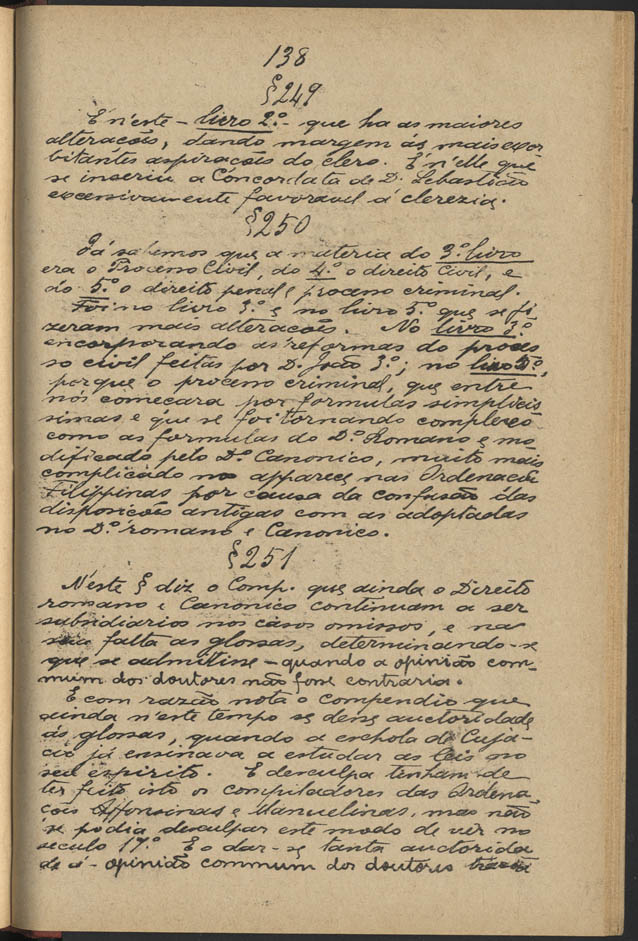 138
§249
É n'este - livro 2º - que ha as maiores
alterações, dando margem ás mais exor
bitantes aspirações do clero. É n'elle que
se inseriu a Concordata de D. Sebastião
excessivamente favoravel á clerezia.
§250
Já sabemos que a materia do 3º livro
era o Processo Civil, do 4º o direito Civil, e
do 5º o direito penal e processo criminal.
Foi no livro 3º e no livro 5º que se fi
zeram mais alterações. No livro 3º
encorporando as reformas do proces
so civil feitas por D. João 3º; no livro 5º,
porque o processo criminal, que entre
nós começara por formulas simplicis
simas e que se foi tornando complexo
como as formulas do Dº Romano e mo
dificado pelo Dº Canonico, muito mais
complicado nos apparece nas Ordenações
Filippinas por causa da confusão das
disposições antigas com as adoptadas
no Dº romano e Canonico.
§251
N'este § diz o Comp. que ainda o Direito
romano e Canonico continuam a ser
subsidiarios nos casos omissos, e na
sua falta as glosas, determinando-se
que se admittisse - quando a opinião com-
mum dos doutores não fosse contraria.
E com razão nota o compendio que
ainda n'este tempo se désse auctoridade
ás glosas, quando a eschola de Cujá-
cio já ensinava a estudar as leis no
seu espirito. E desculpa tenham de
ter feito isto os compiladores das Ordena-
ções Affonsinas e Manuelinas, mas não
se podia desculpar este modo de ver no
seculo 17º. E o dar-se tanta auctorida
de á - opinião commum dos doutores